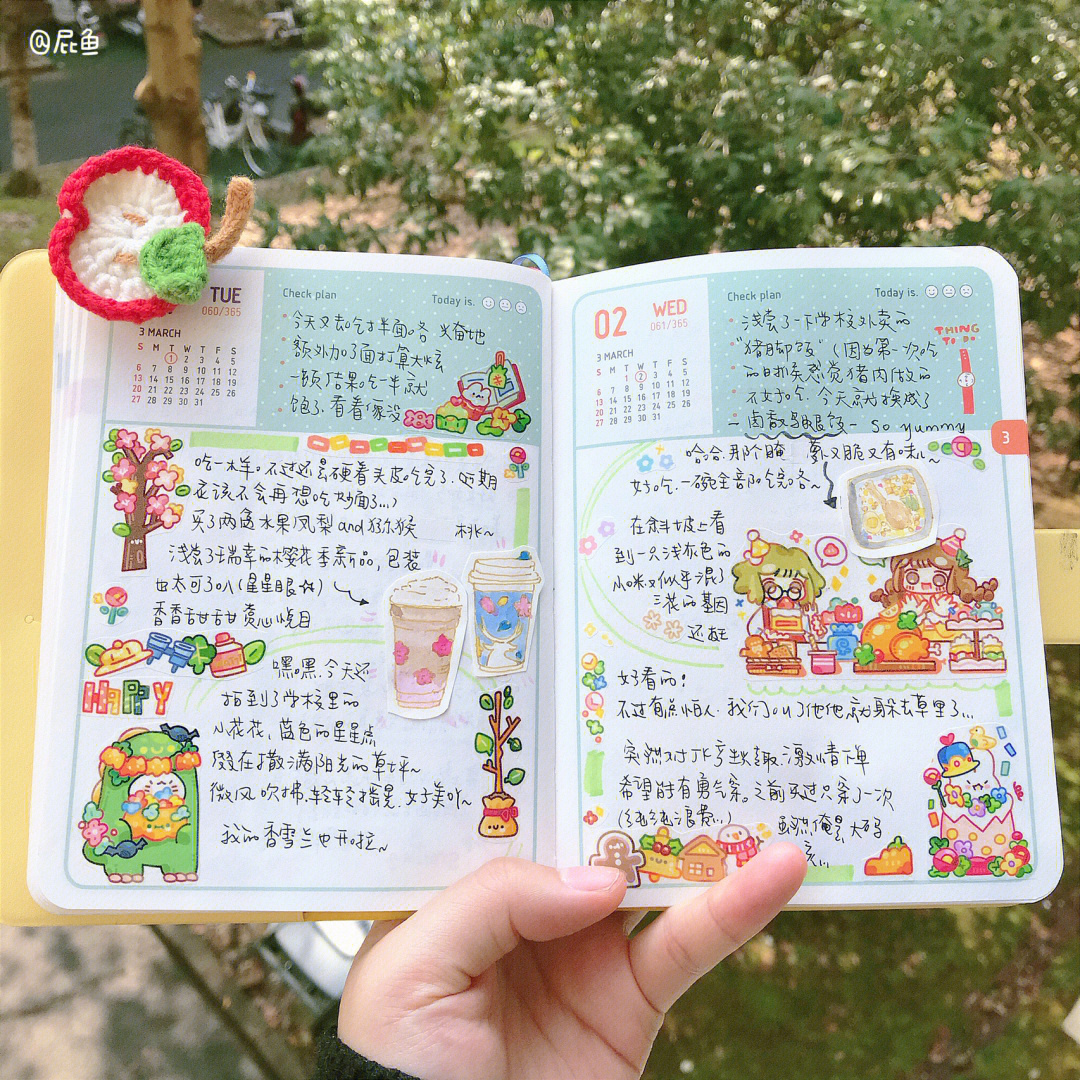 @屁鱼
TUE
060/365
3 MARCH
S M T W T F S
1 2 3 4 5
6 7 8 9 10 11 12
13 14 15 16 17 18 19
20 21 22 23 24 25 26
27 28 29 30 31
Check plan
Today is.
今天又去吃拌面咯 兴奋地
额外加了面打算大炫
一顿 结果吃一半就
饱了.看看家没
吃一样。不过还是硬着头皮吃完了.短期
应该不会再想吃炒面了...)
买了两盒水果凤梨and猕猴桃~
浅尝了瑞幸的樱花季新品,包装
也太可了叭(星星眼☆)
香香甜甜 赏心悦目
HAPPY
嘿嘿.今天还
拍到了学校里的
小花花,蓝色的星星点
缀在撒满阳光的草坪~
微风吹拂.轻轻摇晃.好美吖~
我的香雪兰也开啦~
02
WED
061/365
3 MARCH
S M T W T F S
1 2 3 4 5
6 7 8 9 10 11 12
13 14 15 16 17 18 19
20 21 22 23 24 25 26
27 28 29 30 31
Check plan
Today is.
THING
TO DO
浅尝了一下学校外卖的
"猪脚饭"(因为第一次吃
的时候感觉猪肉做的
不好吃.今天就换成了
-卤香鸡腿饭- So yummy
3
哈哈.那个腌萝又脆又有味儿~
好吃.一碗全部吃完咯~
在斜坡上看
到一只浅灰色的
小咪.似乎混了
三花的基因
还挺
好看的!
不过有点怕人.我们叫了他他就躲去草里了...
突然对JK产生兴趣.激情下单
希望能有勇气穿.之前不过只穿了一次